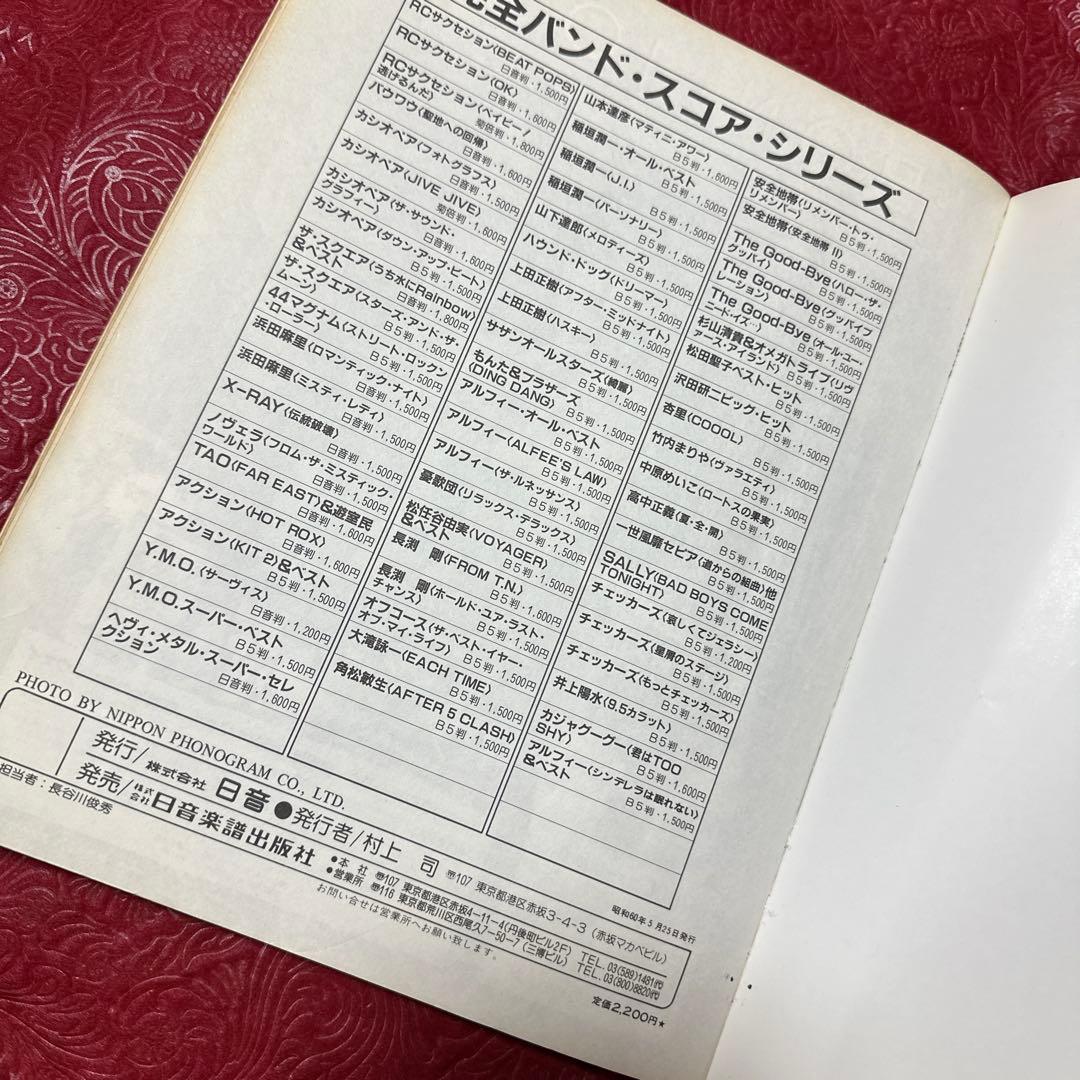 全バンド・スコア・シリーズ
RCサクセション〈BEAT POPS〉
日音判・1,500円
RCサクセション〈OK〉
日音判・1,600円
RCサクセション〈ベイビー!
逃げるんだ〉 菊倍判・1,800円
バウワウ〈聖地への回帰〉
日音判・1,600円
カシオペア〈フォトグラフス〉
日音判・1,500円
カシオペア〈JIVE JIVE〉
菊倍判・1,600円
カシオペア〈ザ・サウンド・
グラフィー〉 日音判・1,600円
カシオペア〈ダウン・アップ・ビート〉
日音判・1,500円
ザ・スクエア〈うち水にRainbow〉
&ベスト 日音判・1,800円
ザ・スクエア〈スターズ・アンド・ザ・
ムーン〉 B5判・1,500円
44マグナム〈ストリート・ロックン
・ローラー〉 B5判・1,500円
浜田麻里〈ロマンティック・ナイト〉
日音判・1,500円
浜田麻里〈ミスティ・レディ〉
日音判・1,500円
X-RAY〈伝統破壊〉
日音判・1,500円
ノヴェラ〈フロム・ザ・ミスティック・
ワールド〉 日音判・1,500円
TAO〈FAR EAST〉&遊室民
日音判・1,600円
アクション〈HOT ROX〉
日音判・1,600円
アクション〈KIT 2〉&ベスト
B5判・1,500円
Y.M.O.〈サーヴィス〉
日音判・1,200円
Y.M.O.スーパー・ベスト
B5判・1,500円
ヘヴィ・メタル・スーパー・セレ
クション 日音判・1,600円
山本達彦〈マティニ・アワー〉
B5判・1,600円
稲垣潤一・オール・ベスト
B5判・1,500円
稲垣潤一〈J.I.〉
B5判・1,500円
稲垣潤一〈パーソナリー〉
B5判・1,500円
山下達郎〈メロディーズ〉
B5判・1,500円
ハウンド・ドッグ〈ドリーマー〉
B5判・1,500円
上田正樹〈アフター・ミッドナイト〉
B5判・1,500円
上田正樹〈ハスキー〉
B5判・1,500円
サザンオールスターズ〈綺麗〉
B5判・1,500円
もんた&ブラザーズ
〈DING DANG〉 B5判・1,500円
アルフィー・オール・ベスト
B5判・1,500円
アルフィー〈ALFEE'S LAW〉
B5判・1,500円
アルフィー〈ザ・ルネッサンス〉
B5判・1,500円
憂歌団〈リラックス・デラックス〉
B5判・1,500円
松任谷由実〈VOYAGER〉
&ベスト B5判・1,500円
長渕 剛〈FROM T.N.〉
B5判・1,600円
長渕 剛〈ホールド・ユア・ラスト・
チャンス〉 B5判・1,500円
オフコース〈ザ・ベスト・イヤー・
オブ・マイ・ライフ〉 B5判・1,500円
大滝詠一〈EACH TIME〉
B5判・1,500円
角松敏生〈AFTER 5 CLASH〉
B5判・1,500円
安全地帯〈リメンバー・トゥ・
リメンバー〉 B5判・1,500円
安全地帯〈安全地帯 II〉
B5判・1,500円
The Good-Bye〈ハロー・ザ・
グッバイ〉 B5判・1,500円
The Good-Bye〈グッバイブ
レーション〉 B5判・1,500円
The Good-Bye〈オール・ユー・
ニード・イズ…〉 B5判・1,500円
杉山清貴&オメガトライブ〈リヴ
アーズ・アイランド〉 B5判・1,500円
松田聖子ベスト・ヒット
B5判・1,500円
沢田研二ビック・ヒット
B5判・1,500円
杏里〈COOOL〉
B5判・1,500円
竹内まりや〈ヴァラエティ〉
B5判・1,500円
中原めいこ〈ロートスの果実〉
B5判・1,500円
高中正義〈夏・全・開〉
B5判・1,500円
一世風靡セピア〈道からの組曲〉他
B5判・1,500円
SALLY〈BAD BOYS COME
TONIGHT〉 B5判・1,500円
チェッカーズ〈哀しくてジェラシー〉
B5判・1,200円
チェッカーズ〈星屑のステージ〉
B5判・1,500円
チェッカーズ〈もっとチェッカーズ〉
B5判・1,500円
井上陽水〈9.5カラット〉
B5判・1,500円
カジャグーグー〈君はTOO
SHY〉 B5判・1,600円
アルフィー〈シンデレラは眠れない〉
&ベスト B5判・1,500円
PHOTO BY NIPPON PHONOGRAM CO., LTD.
昭和60年5月25日発行
発行/株式会社 日音●発行者/村上 司 〒107 東京都港区赤坂3-4-3(赤坂マカベビル)
発売/株式会社 日音楽譜出版社 ●本 社 〒107 東京都港区赤坂4-11-4(丹後町ビル2F) TEL.03(589)1481代
●営業所 〒116 東京都荒川区西尾久7-50-7(三博ビル) TEL.03(800)8820代
担当者:長谷川俊秀
お問い合せは営業所へお願い致します。
定価2,200円★